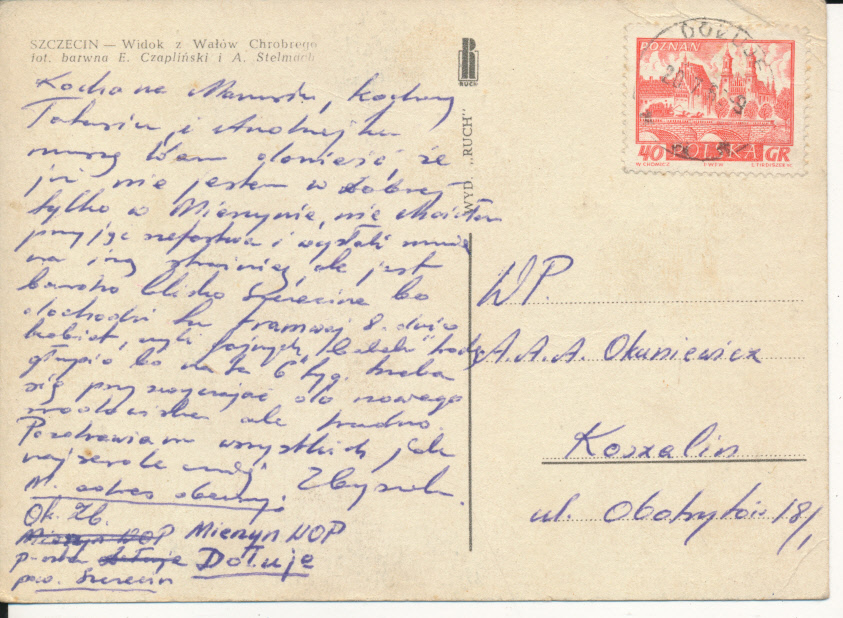 SZCZECIN — Widok z Wałów Chrobrego
fot. barwna E. Czapliński i A. Stelmach
Kochana Mamusiu, kochany
Tatusiu i Andrzejku
muszę Wam donieść że
już nie jestem w Dobrej
tylko w Mierzynie, nie
i wysłali mnie
na inną strażnicę, ale jest
bardzo blisko Szczecina bo
dochodzi tu tramwaj 8. dużo
kobiet, czyli fajnych
głupio bo na te 6 tyg. trzeba
się przyzwyczajać do nowego
środowiska ale trudno.
Pozdrawiam wszystkich jak
najserdeczniej Zbyszek.
M. adres obecny.
Ok. Zb.
Mierzyn WOP Mierzyn WOP
p-ta Dołuje Dołuje
pow. Szczecin
RUCH
WYD. „RUCH"
POZNAŃ
40 POLSKA GR
DOŁUJE
WP.
A.A.A. Okuniewicz
Koszalin
ul. Obotrytów 18/1